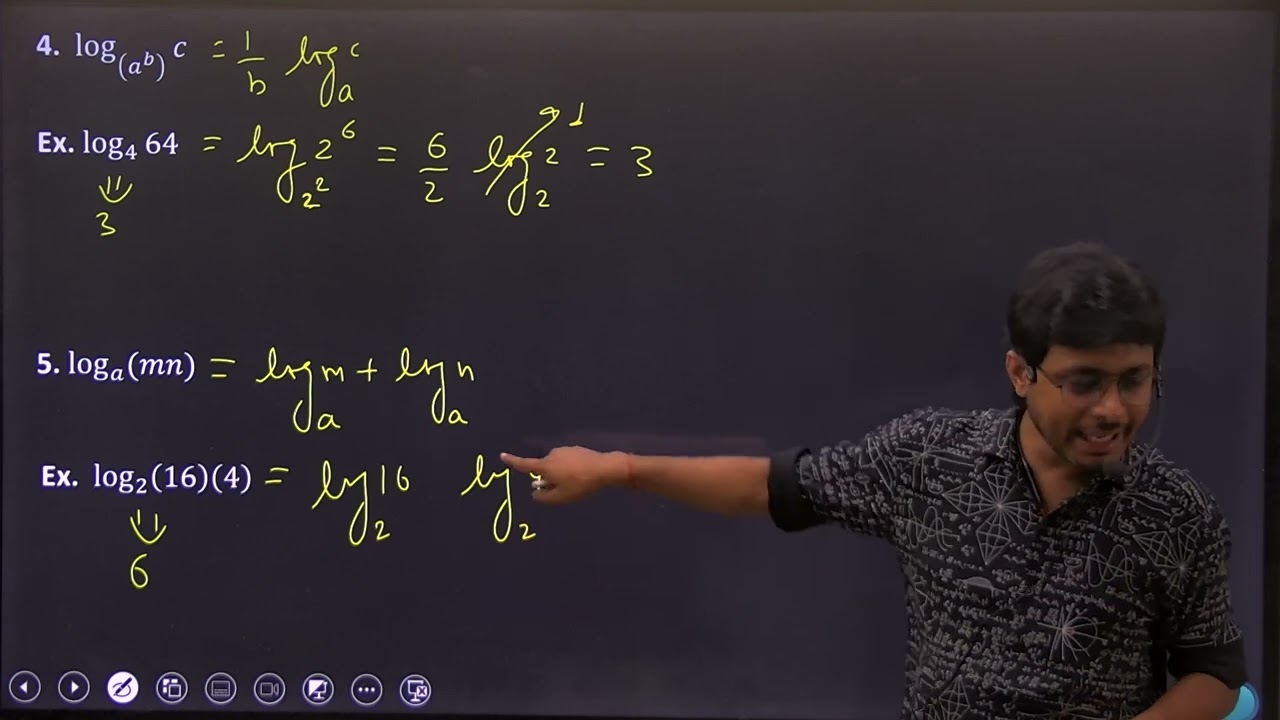 4. log₍ₐᵇ₎ c = 1/b logₐ c
Ex. log₄ 64 = log_{2²} 2⁶ = 6/2 log₂ 2 1 = 3
3
5. logₐ(mn) = logₐ m + logₐ n
Ex. log₂(16)(4) = log₂ 16 log₂
6